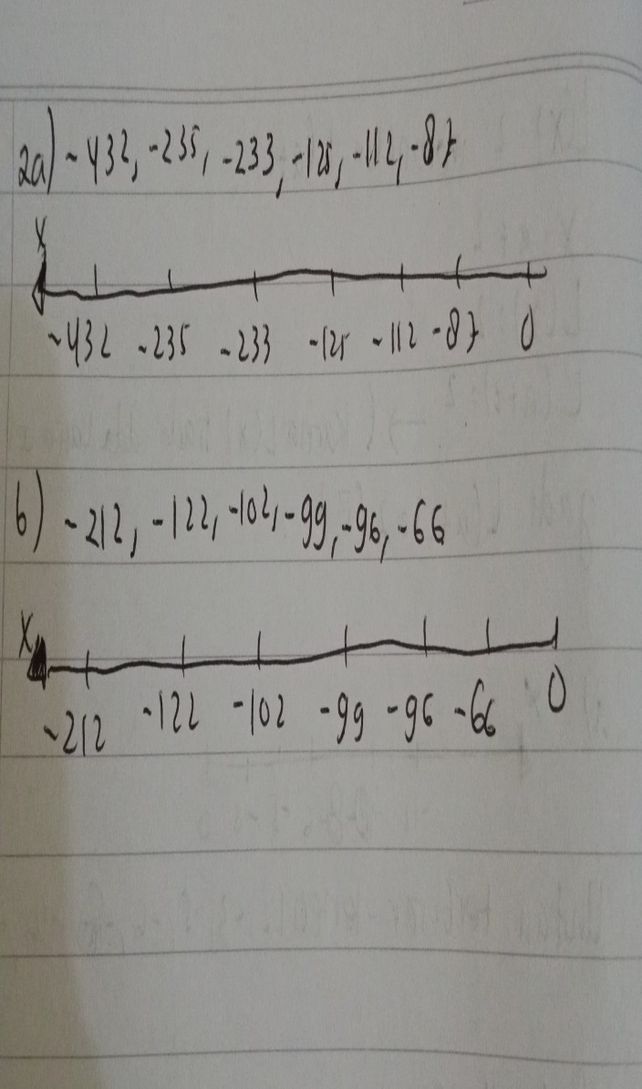 2a) -432, -235, -233, -125, -112, -87
x
-432 -235 -233 -125 -112 -87 0
b) -212, -122, -102, -99, -96, -66
x
-212 -122 -102 -99 -96 -66 0